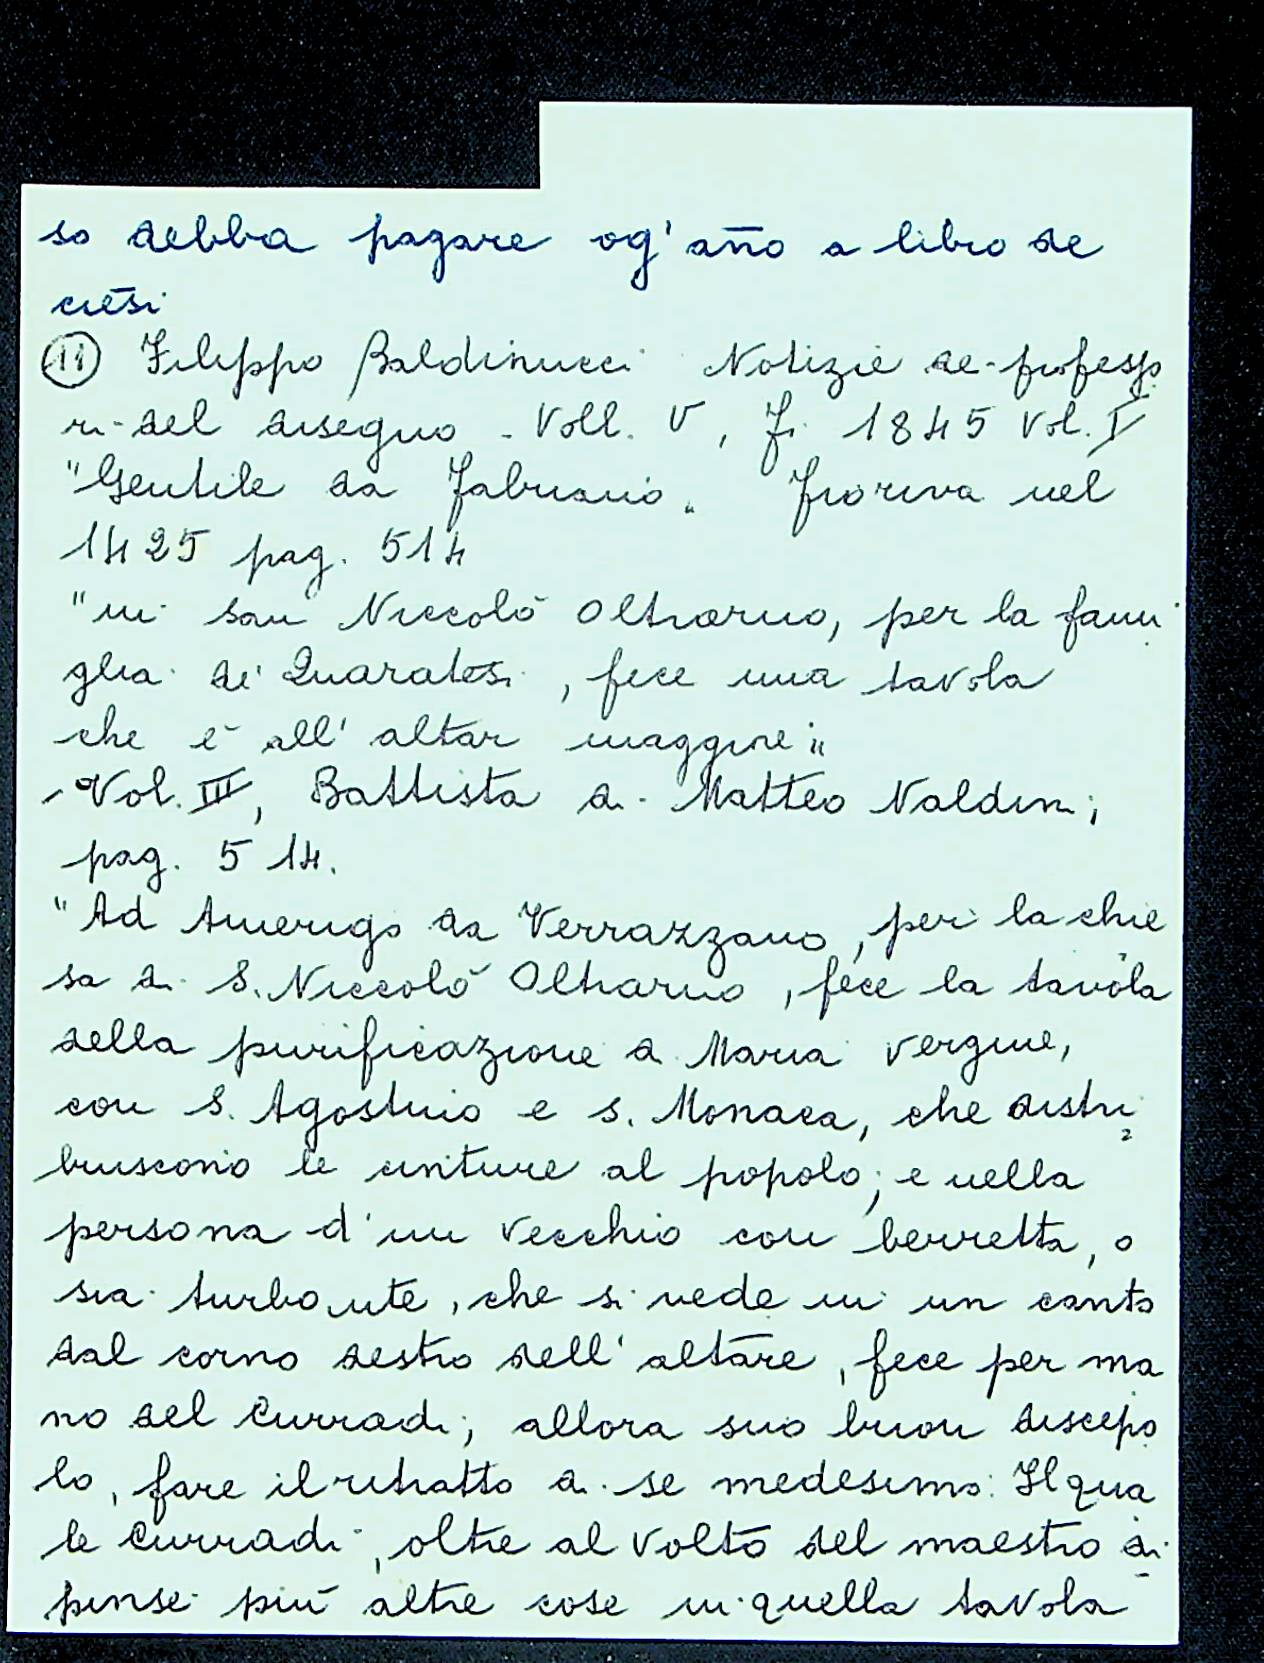 so debba pagare og' año a libro de
cresi
(11) Filippo Baldinucci Notizie de-professo
ri-del disegno - Voll. V, Fi 1845 Vol. I
"Gentile da Fabriano" Fioriva nel
1425 pag. 514
"in san Niccolò Oltrarno, per la fami
glia de' Quaratesi, fece una tavola
che è all' altar maggiore"
- Vol. III, Battista di Matteo Naldini;
pag. 514.
"Ad Amerigo da Verrazzano, per la chie
sa di S. Niccolò Oltrarno, fece la tavola
della purificazione di Maria vergine,
con S. Agostino e s. Monaca, che distri
buiscono le cinture al popolo; e nella
persona d'un vecchio con berretta, o
sia turbante, che si vede in un canto
dal corno destro dell' altare, fece per ma
no del Curradi, allora suo buon discepo
lo, fare il ritratto di se medesimo: Il qua
le Curradi, oltre al volto del maestro di
pinse più altre cose in quella tavola